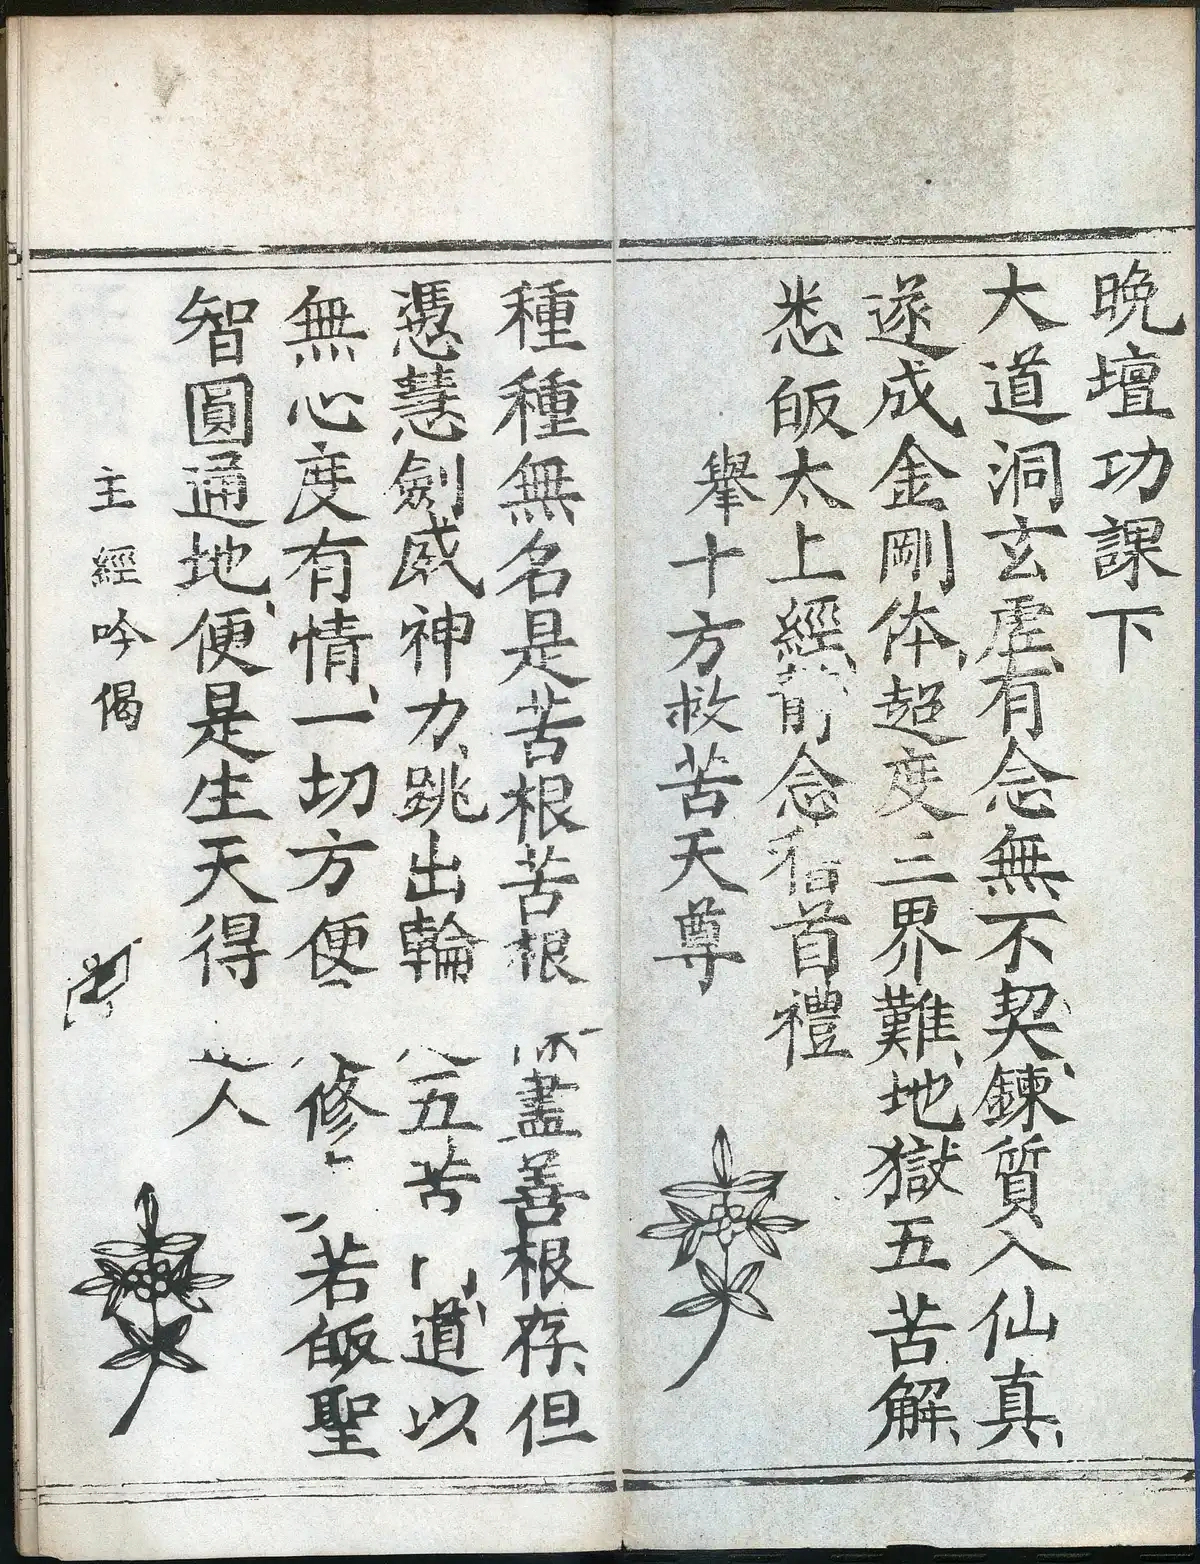 晩壇功課下
大道洞玄虛、有念無不契、鍊質入仙真、
遂成金剛体、超度三界難、地獄五苦解、
悉皈太上經、靜念稽首禮
舉十方救苦天尊
種種無名是苦根苦根 除盡善根存、但
憑慧劍威神力、跳出輪 五苦 門、道以
無心度有情、一切方便 修 若皈聖
智圓通地、便是生天得 人
主經吟偈